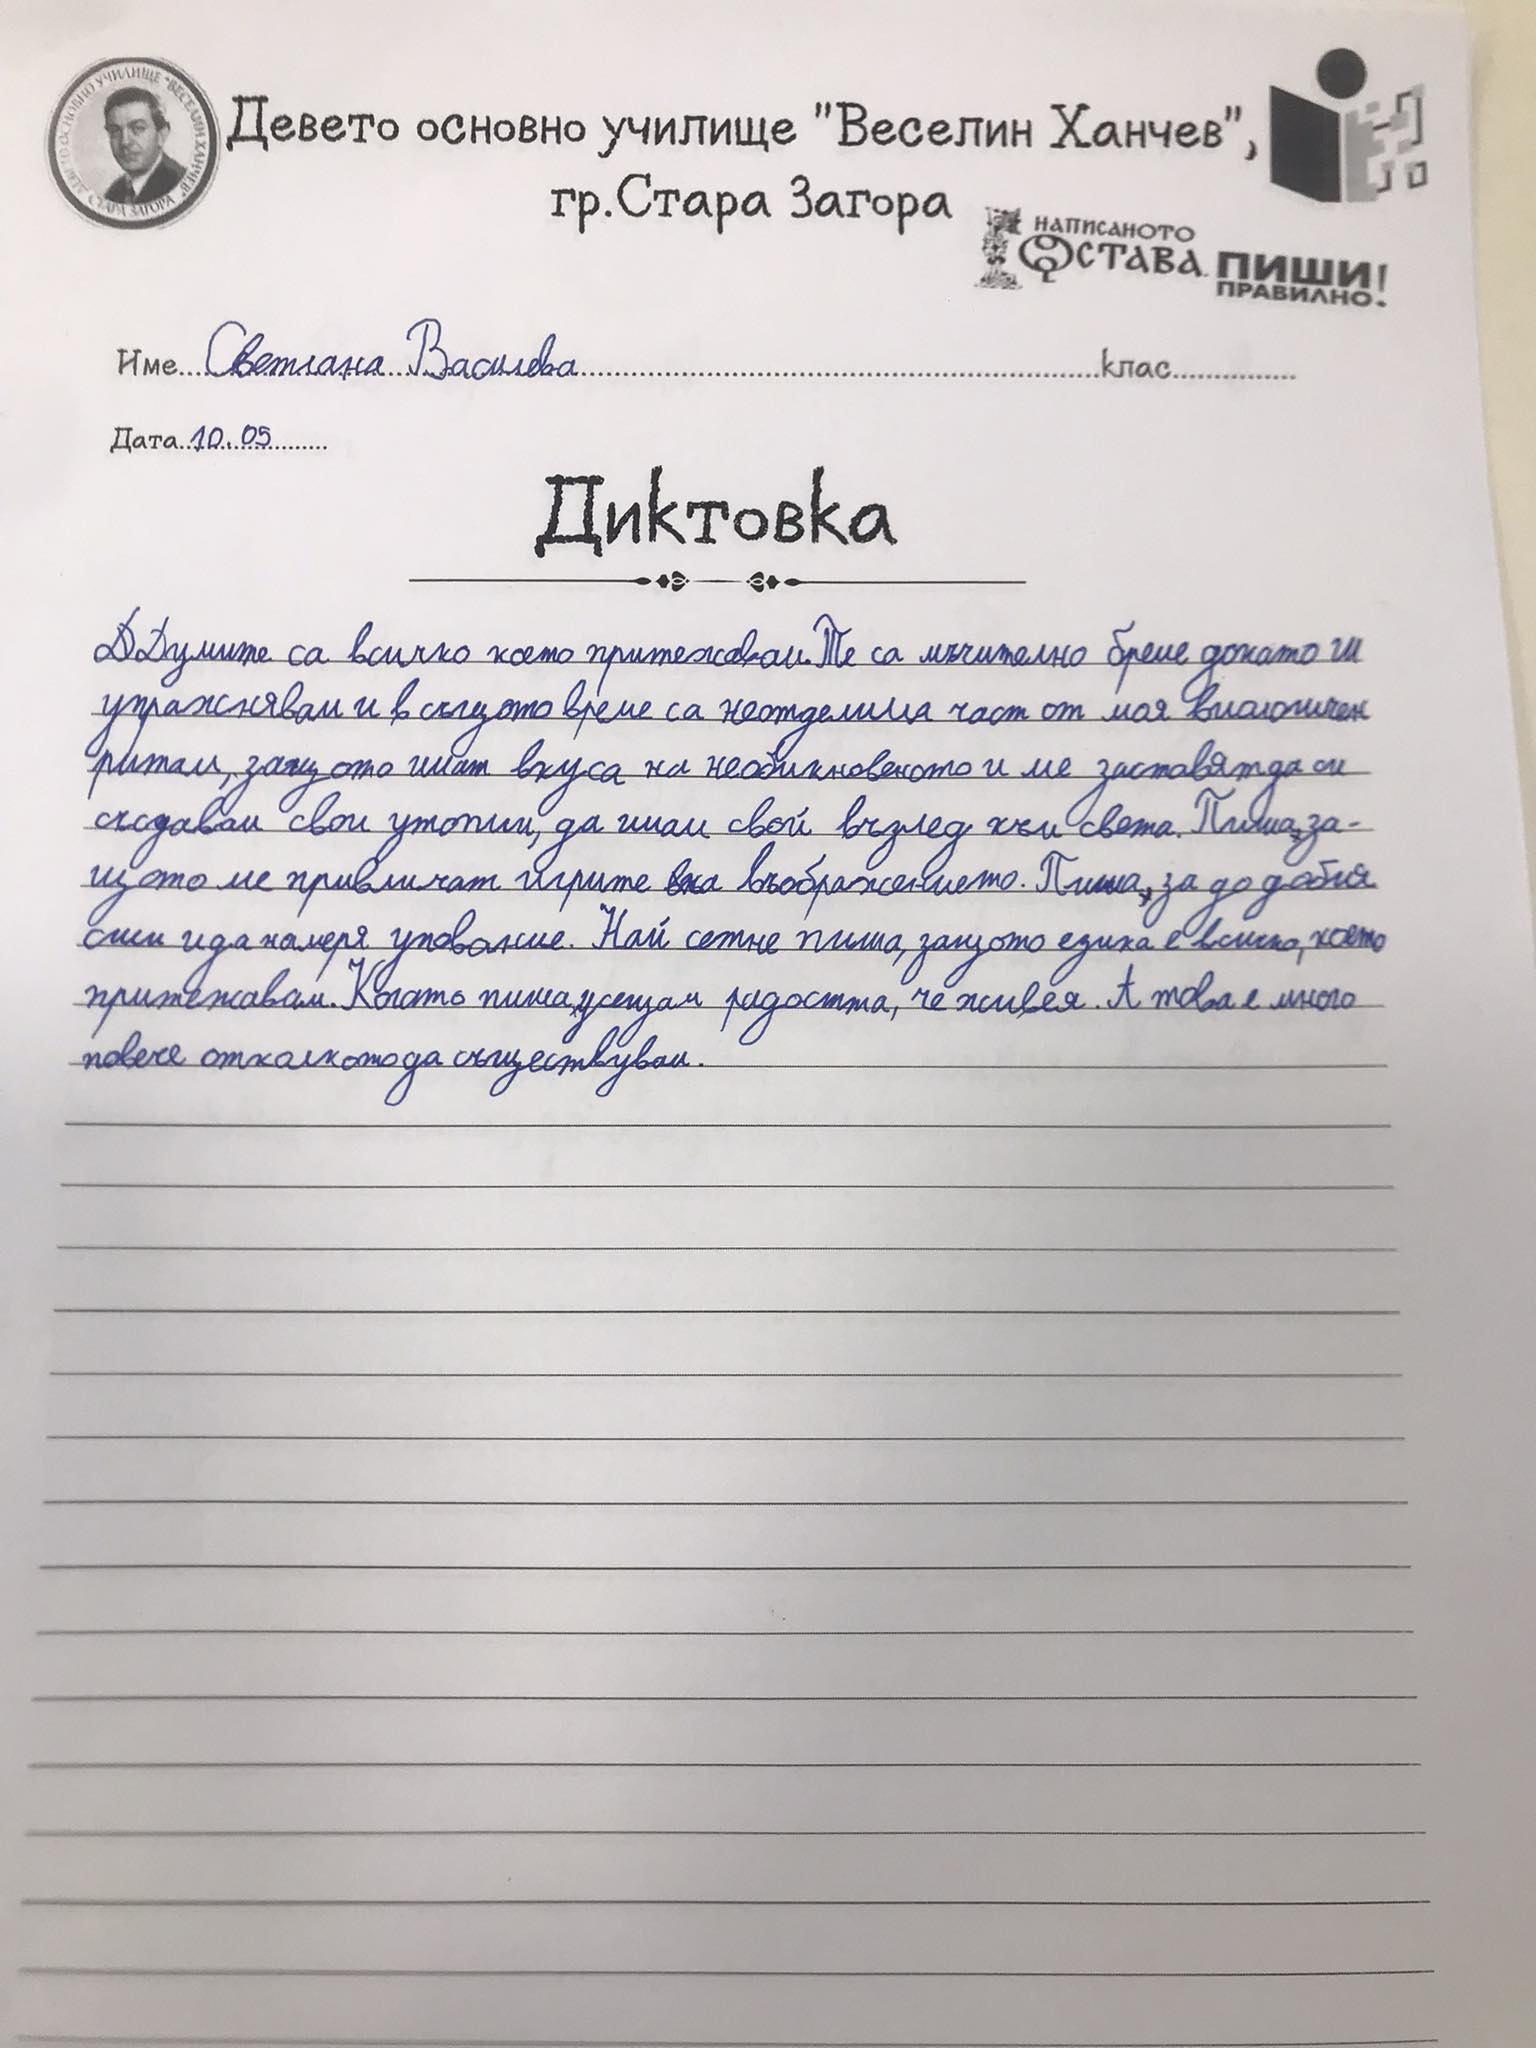 ДЕВЕТО ОСНОВНО УЧИЛИЩЕ "ВЕСЕЛИН ХАНЧЕВ" СТАРА ЗАГОРА
Девето основно училище "Веселин Ханчев",
гр.Стара Загора
НАПИСАНОТО
ОСТАВА. ПИШИ
ПРАВИЛНО!
Име Светлана Василева клас
Дата 10.05
Диктовка
Думите са всичко което притежавам. Те са мъчително бреме докато ги
упражнявам и в същото време са неотделима част от моя виологичен
ритам, защото имат вкуса на необикновеното и ме заставят да си
създавам свои утопии, да имам свой възглед към света. Пиша, за-
щото ме привличат игрите на въображението. Пиша, за да добия
сили и да намеря упование. Най сетне пиша, защото езика е всичко, което
притежавам. Когато пиша, усещам радостта, че живея. А това е много
повече отколкото да съществувам.